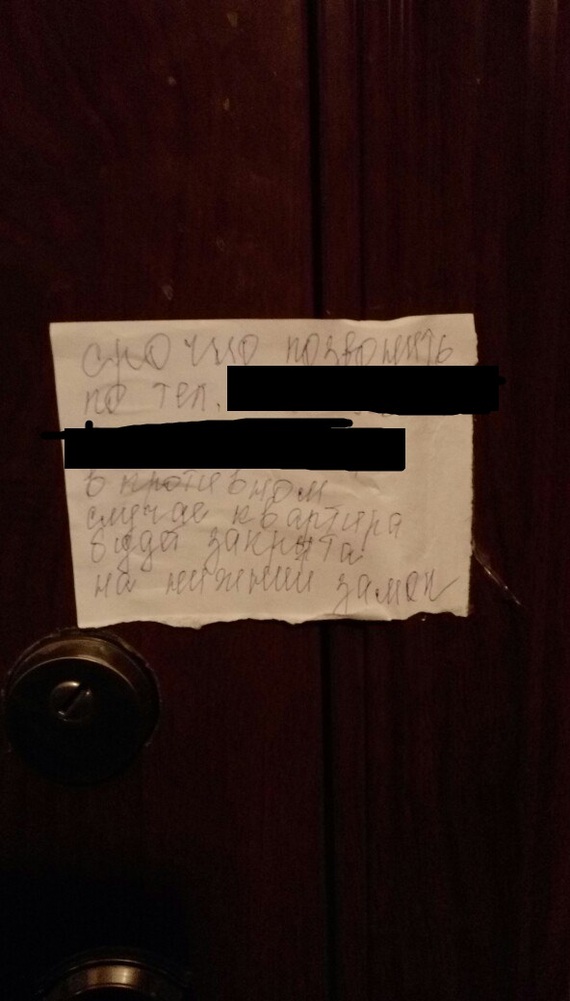 срочно позвонить
по тел.
в противном
случае квартира
будет закрыта
на нижний замок